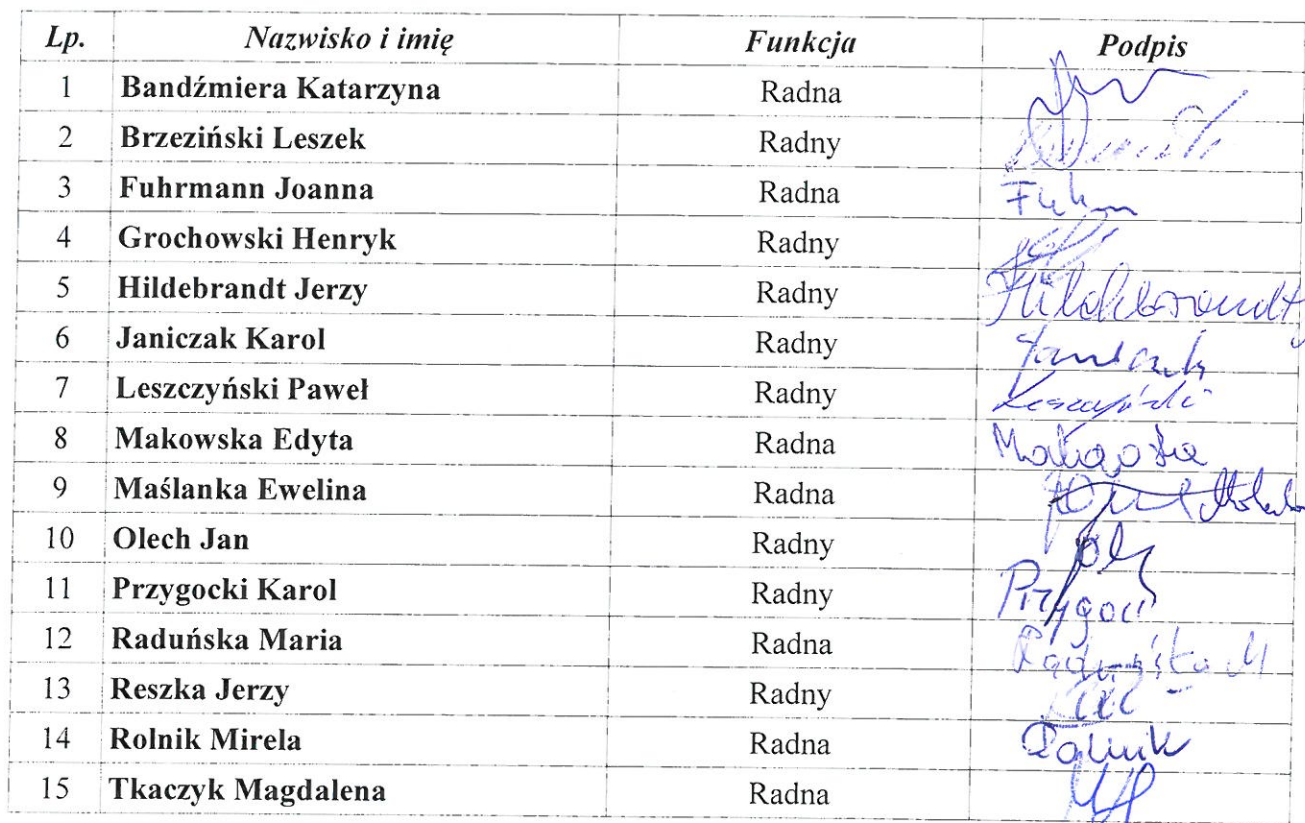 Lp. Nazwisko i imię Funkcja Podpis
1 Bandźmiera Katarzyna Radna
2 Brzeziński Leszek Radny
3 Fuhrmann Joanna Radna
4 Grochowski Henryk Radny
5 Hildebrandt Jerzy Radny Hildebrandt
6 Janiczak Karol Radny
7 Leszczyński Paweł Radny
8 Makowska Edyta Radna
9 Maślanka Ewelina Radna
10 Olech Jan Radny
11 Przygocki Karol Radny
12 Raduńska Maria Radna Raduńska M
13 Reszka Jerzy Radny
14 Rolnik Mirela Radna Rolnik
15 Tkaczyk Magdalena Radna